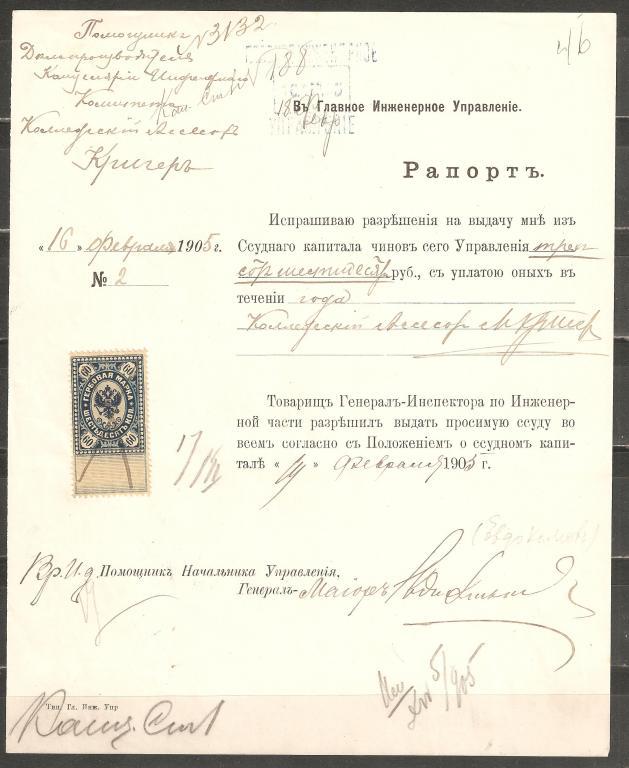 Помощника
№ 3132
Делопроизводителя
Канцеляріи Инженернаго
Комитета
Коллежскій Ассесоръ
Кригеръ
188
46
Въ Главное Инженерное Управленіе.
УПРАВЛЕНІЕ
Рапортъ.
„ 16 " февраля 1905 г.
№ 2
Испрашиваю разрѣшенія на выдачу мнѣ изъ
Ссуднаго капитала чиновъ сего Управленія трех
сотъ шестидес. руб., съ уплатою оныхъ въ
теченіи года
Коллежскій Ассесоръ Кригеръ
60 60
ГЕРБОВАЯ МАРКА
ШЕСТЬДЕСЯТЪ КОП.
60 60
Товарищъ Генералъ-Инспектора по Инженер-
ной части разрѣшилъ выдать просимую ссуду во
всемъ согласно съ Положеніемъ о ссудномъ капи-
талѣ „ " февраля 1905 г.
(Евдокимовъ)
Вр. И. д. Помощникъ Начальника Управленія,
Генералъ-Маіоръ
Тип. Гл. Инж. Упр